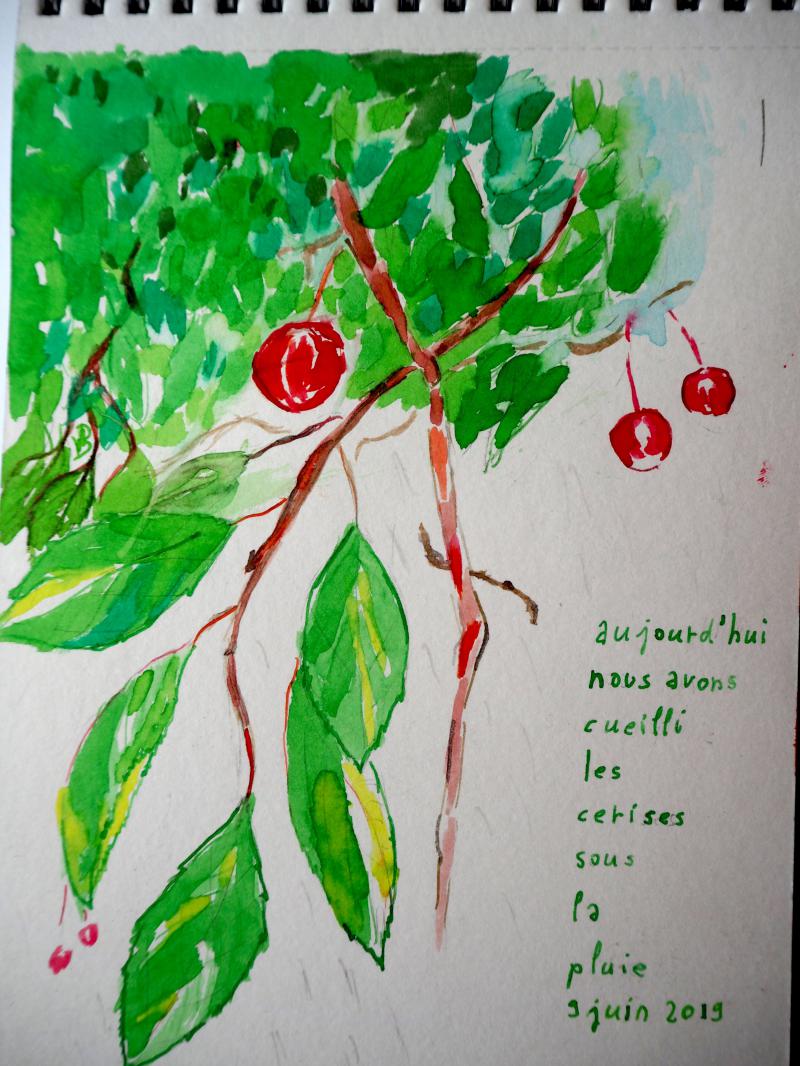 aujourd'hui
nous avons
cueilli
les
cerises
sous
la
pluie
9 juin 2019